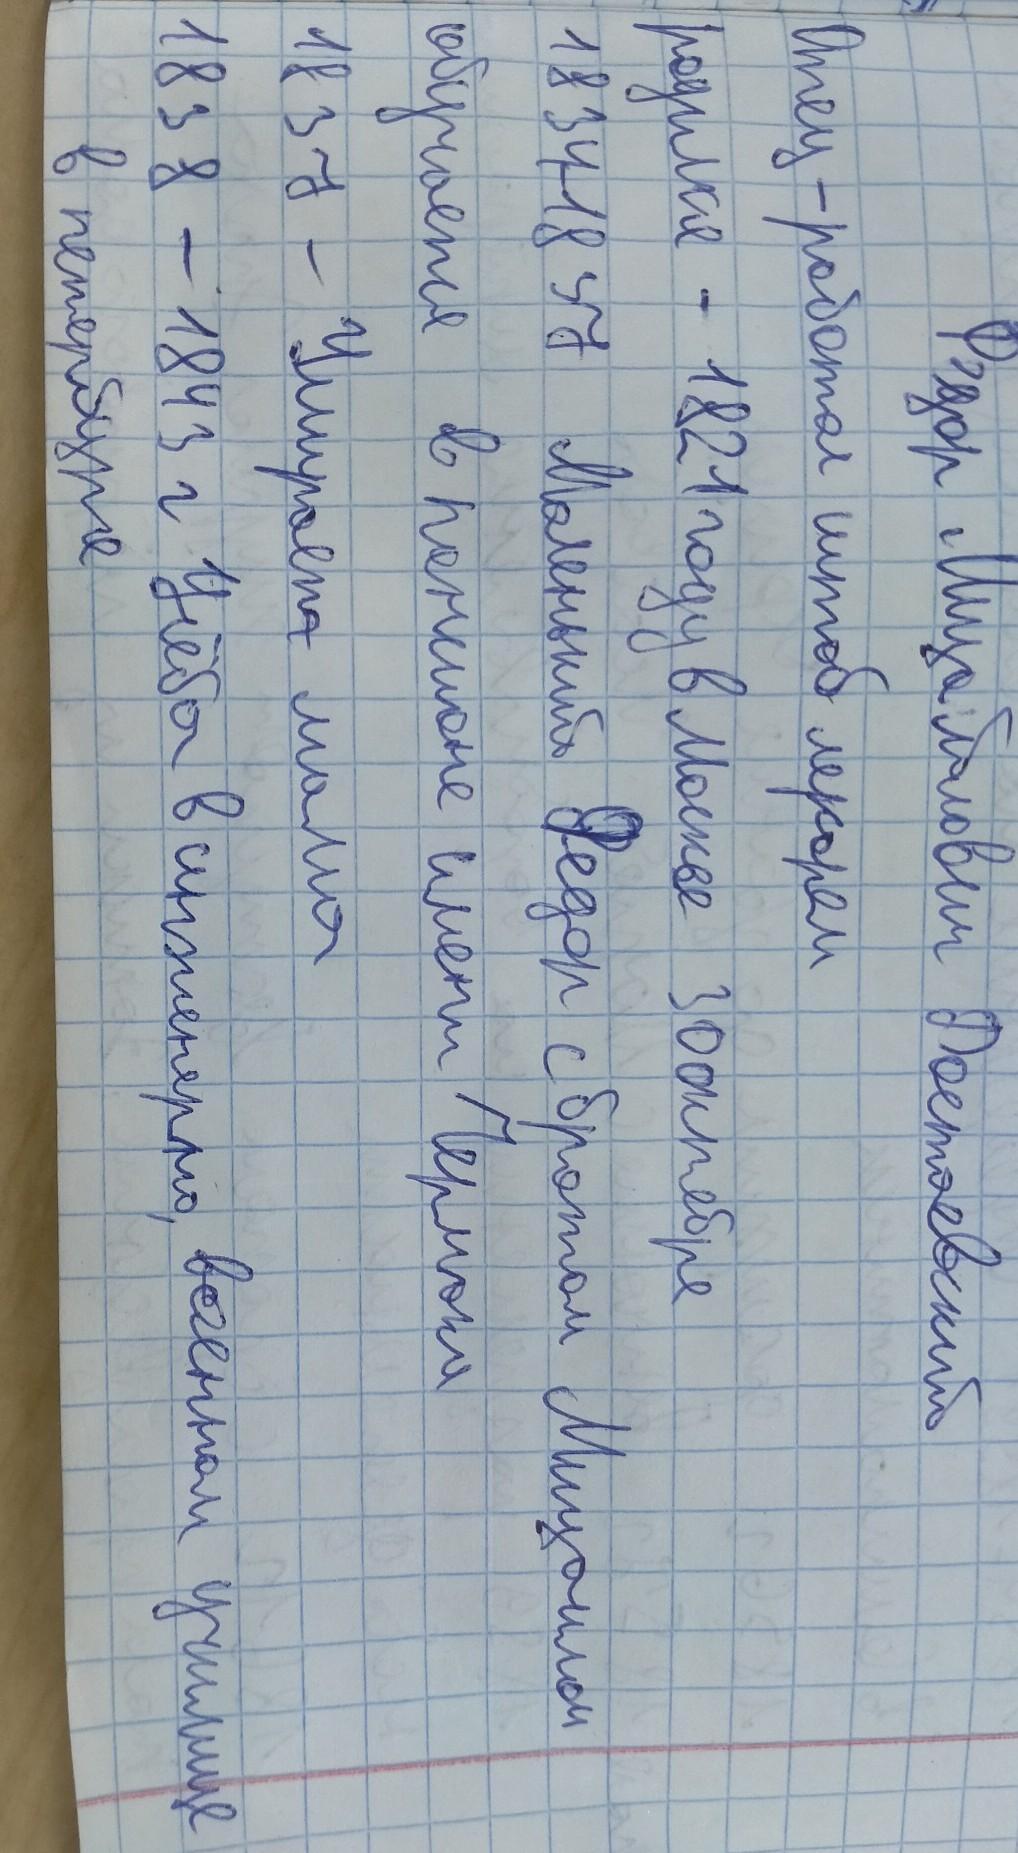 Фёдор Мицайлович Достоевский
Отец - работал штоб лекарем
родился - 1821 году в Москве 30 октебре
18341837 Маленький Федор с братом Мицаилом
обучается в пенсионе имени Чермока
1837 - Умирает мама
1838 - 1843 г Учёба в инженерно, военном училище
в петербурге